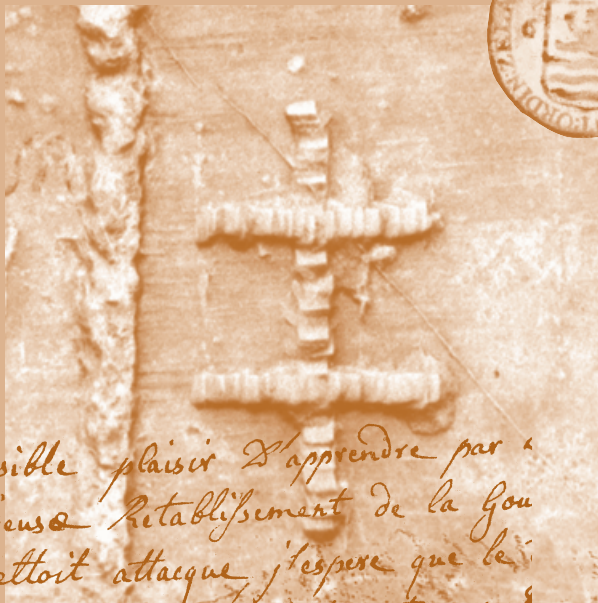 ORDINE ZE
sible plaisir D'apprendre par
euse Retablissement de la Gou
ettoit attacque j'espere que le